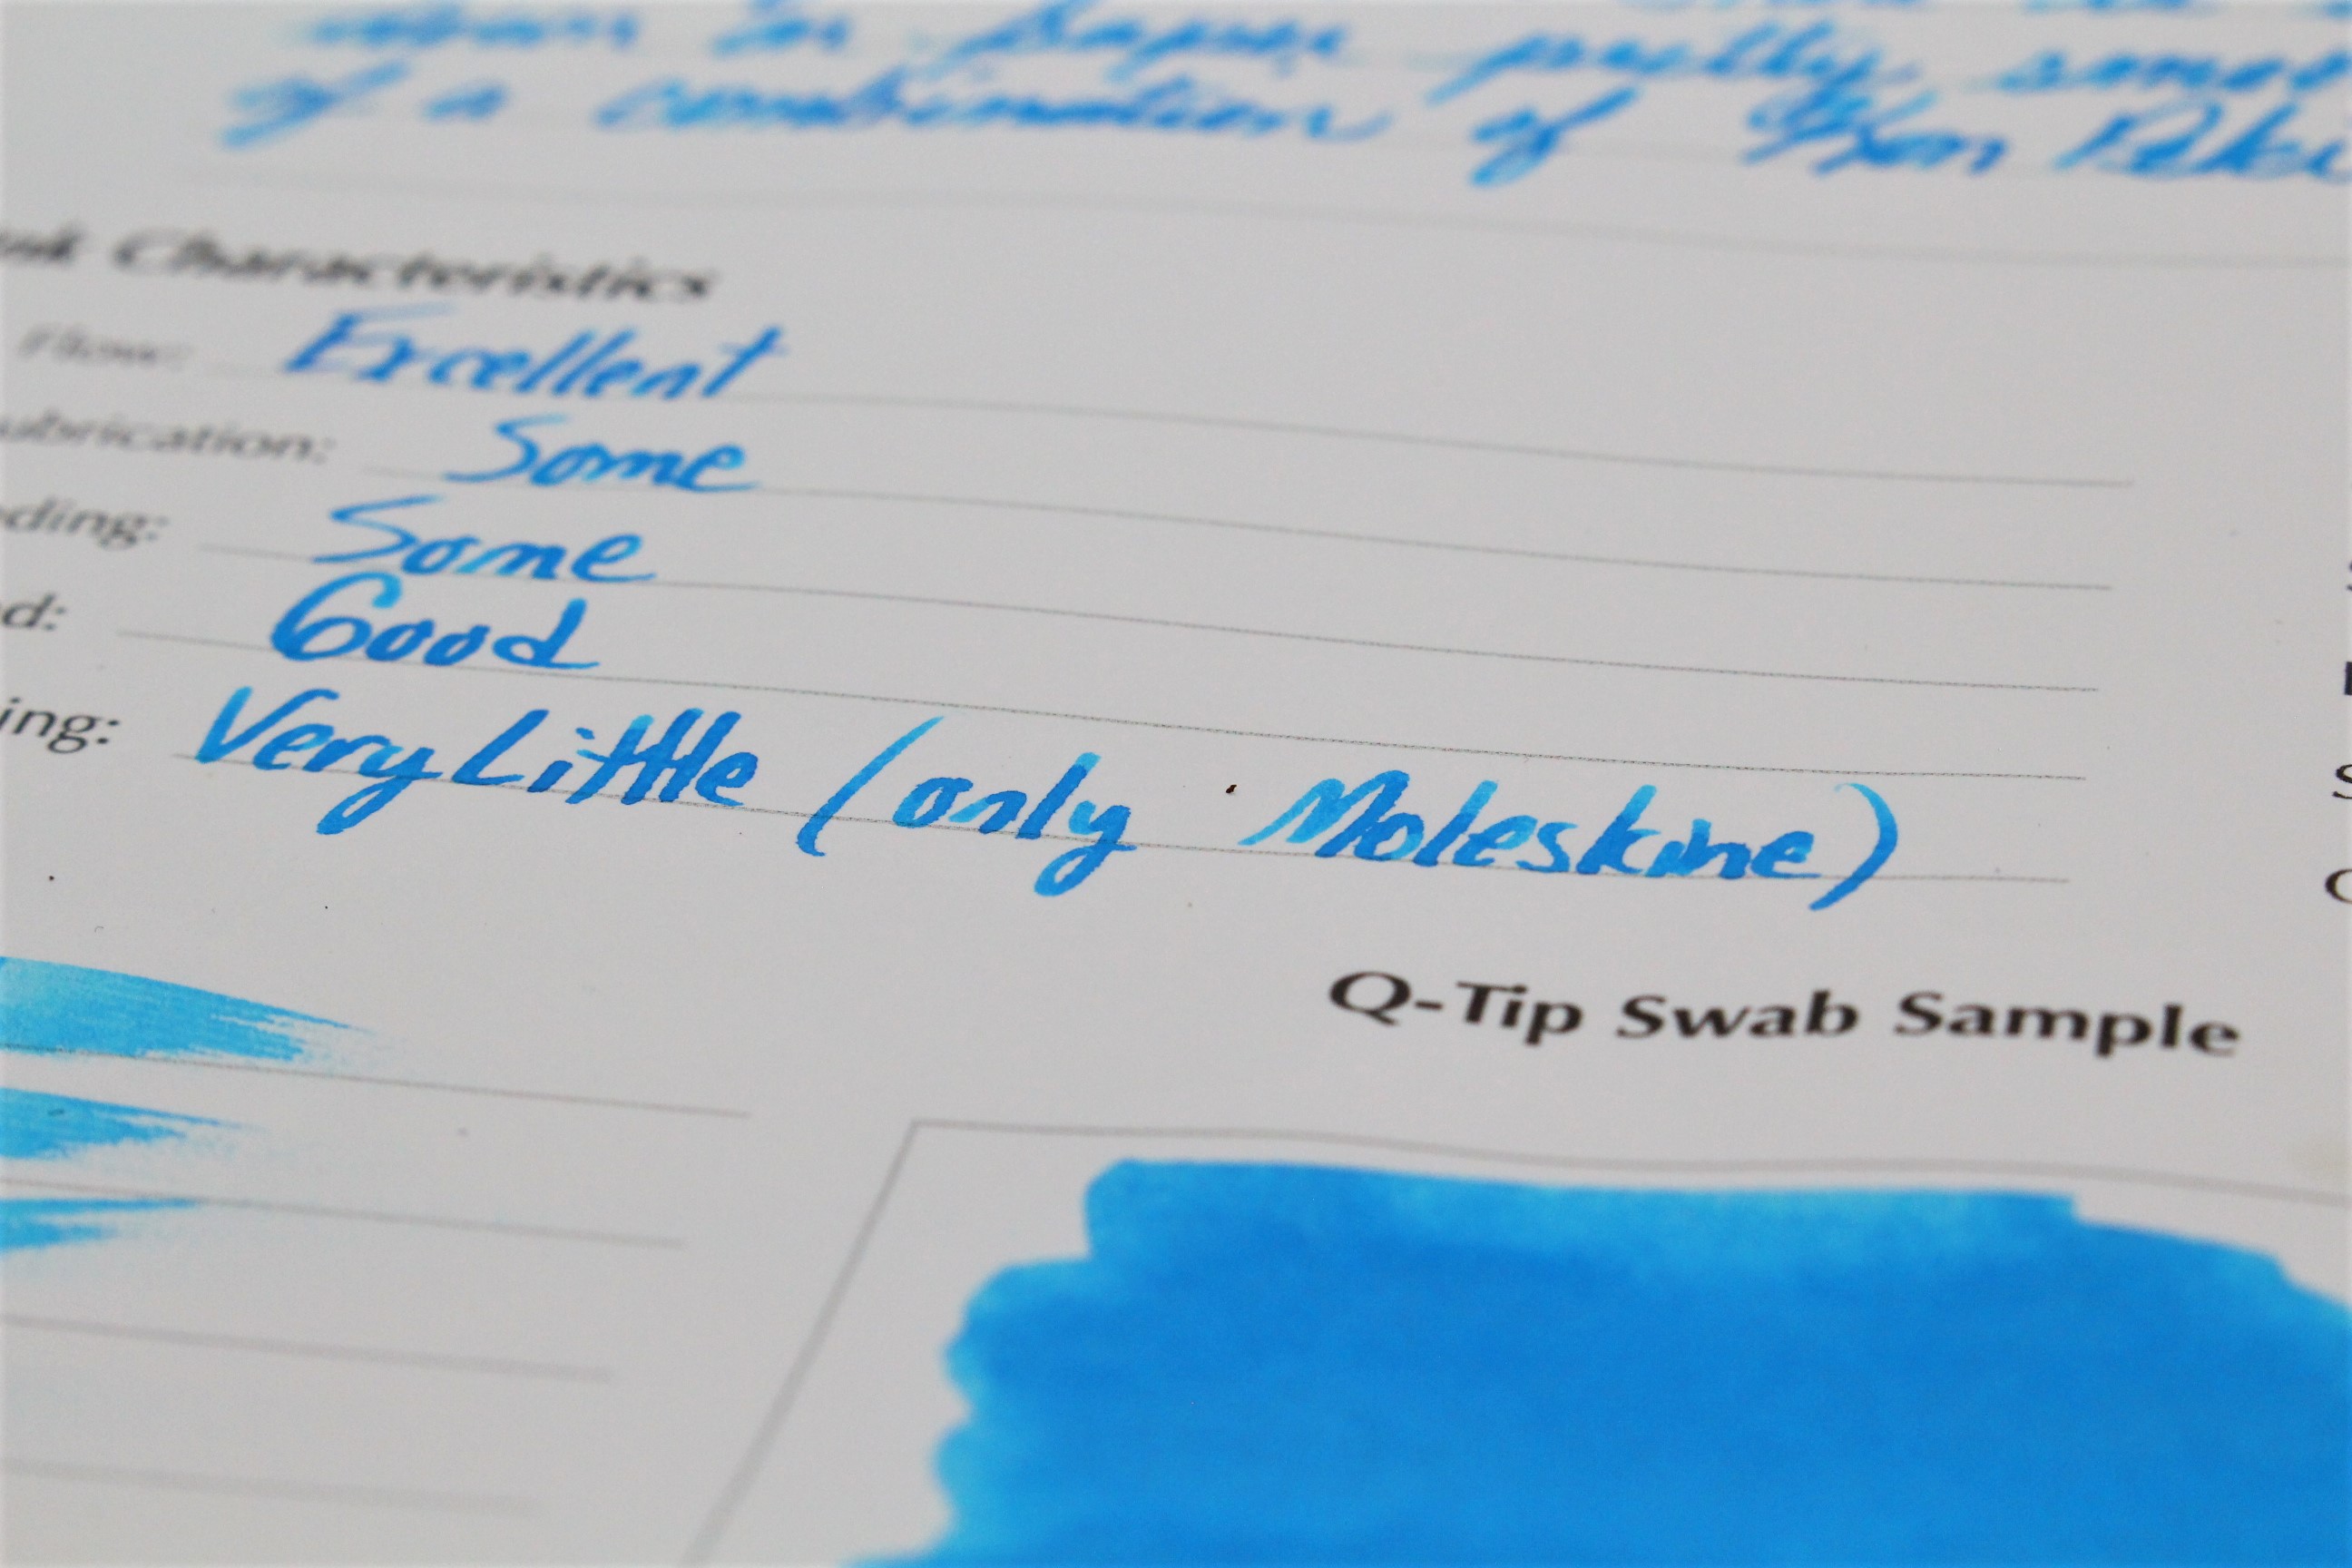 in paper pretty
of a combination of
Characteristics
Flow: Excellent
ubrication: Some
ding: Some
d: Good
ing: Very Little (only Moleskine)
Q-Tip Swab Sample